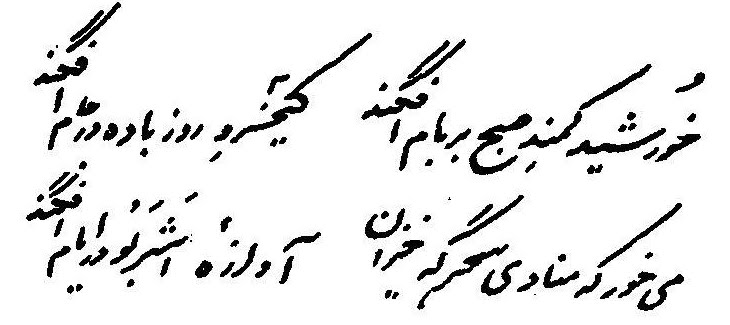 خُورشید کمندِ صبح بر بام افکند کیخسروِ روز باده در جام افکند
می خور که منادی سحرگه خیزان آوازهٔ اشَرَبُوا در ایام افکند